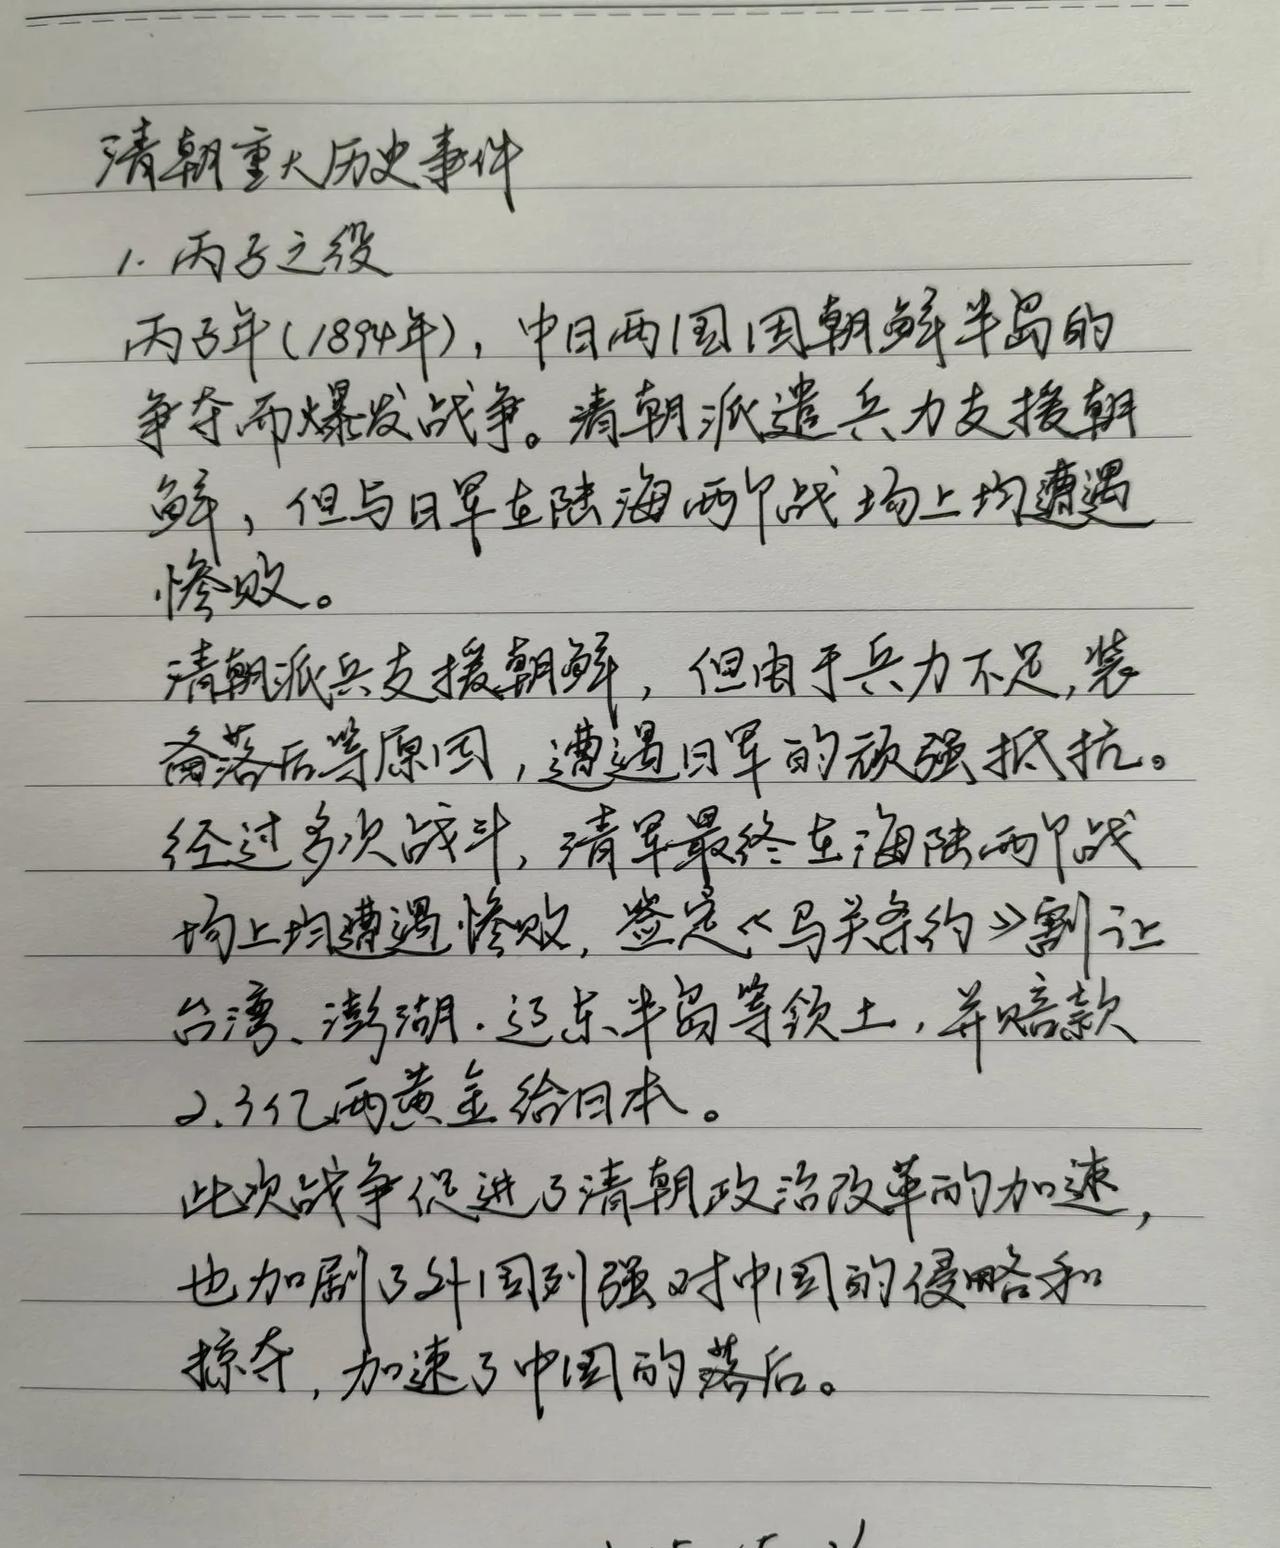 清朝重大历史事件
1. 丙子之役
丙子年(1894年)，中日两国因朝鲜半岛的
争夺而爆发战争。清朝派遣兵力支援朝
鲜，但与日军在陆海两个战场上均遭遇
惨败。
清朝派兵支援朝鲜，但由于兵力不足,装
备落后等原因,遭遇日军的顽强抵抗。
经过多次战斗,清军最终在海陆两个战
场上均遭遇惨败,签定《马关条约》割让
台湾、澎湖.辽东半岛等领土,并赔款
2.3亿两黄金给日本。
此次战争促进了清朝政治改革的加速,
也加剧了外国列强对中国的侵略和
掠夺,加速了中国的落后。